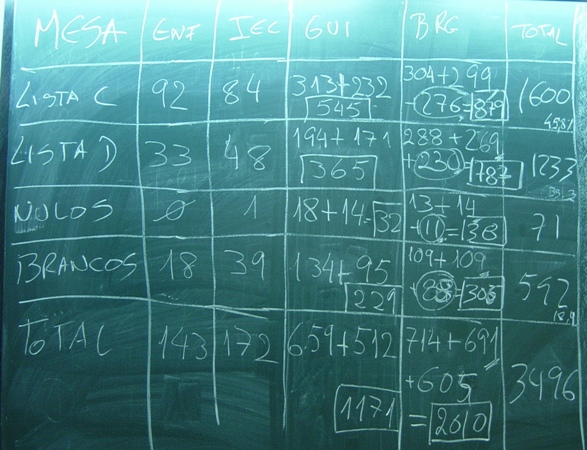 MESA ENF IEC GUI BRG TOTAL
LISTA C 92 84 313+232 545 304+299 +276=879 1600
45,8%
LISTA D 33 48 194+171 365 288+269 +230=787 1233
35,3
NULOS 0 1 18+14=32 13+14 +11=38 71
BRANCOS 18 39 134+95 229 109+109 +88=306 592
16,9
TOTAL 143 172 659+512 714+691 3496
+605
1171 =2010